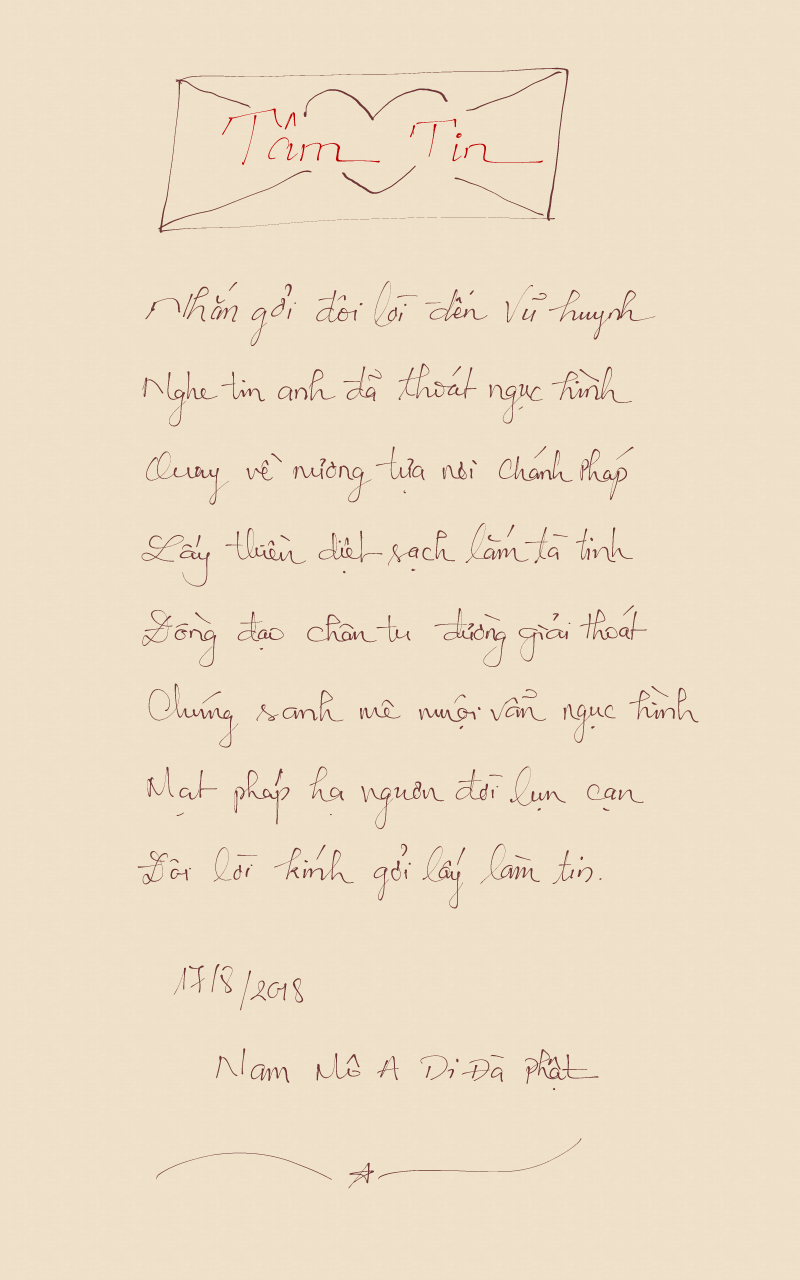 Tâm Tin
Nhắn gởi đôi lời đến Vũ huynh
Nghe tin anh đã thoát ngục hình
Quay về nương tựa nơi Chánh Pháp
Lấy thiền diệt sạch lắm tà tinh
Đồng đạo chân tu đường giải thoát
Chúng sanh mê muội vẫn ngục hình
Mạt pháp hạ nguơn đời lụn cạn
Đôi lời kính gởi lấy làm tin.
17/8/2018
Nam Mô A Di Đà Phật